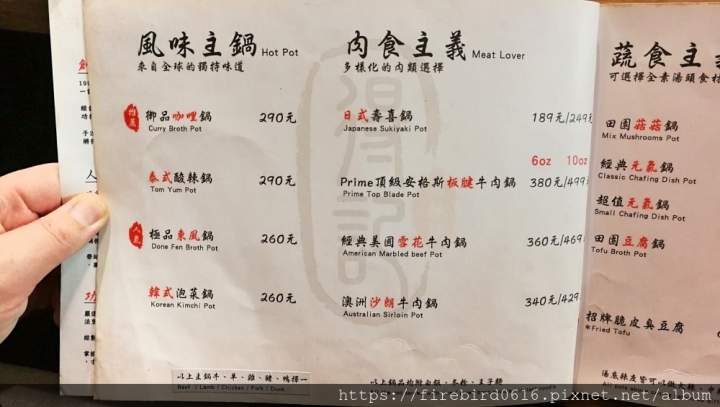 風味主鍋 Hot Pot
來自全球的獨特味道
推薦 御品咖哩鍋 290元
Curry Broth Pot
泰式酸辣鍋 290元
Tom Yum Pot
人氣 極品東風鍋 260元
Done Fen Broth Pot
韓式泡菜鍋 260元
Korean Kimchi Pot
以上主鍋牛、羊、雞、豬、鴨擇一
Beef / Lamb / Chicken / Pork / Duck
肉食主義 Meat Lover
多樣化的肉類選擇
日式壽喜鍋 189元/249元
Japanese Sukiyaki Pot
6oz 10oz
Prime頂級安格斯板腱牛肉鍋 380元/499
Prime Top Blade Pot
經典美國雪花牛肉鍋 360元/469
American Marbled beef Pot
澳洲沙朗牛肉鍋 340元/429
Australian Sirloin Pot
蔬食主
可選擇全素湯頭食材
田園菇菇鍋
Mix Mushrooms Pot
經典元氣鍋
Classic Chafing Dish Pot
超值元氣鍋
Small Chafing Dish Pot
田園豆腐鍋
Tofu Broth Pot
招牌脆皮臭豆腐
*Fried Tofu
https://firebird0616.pixnet.net/album